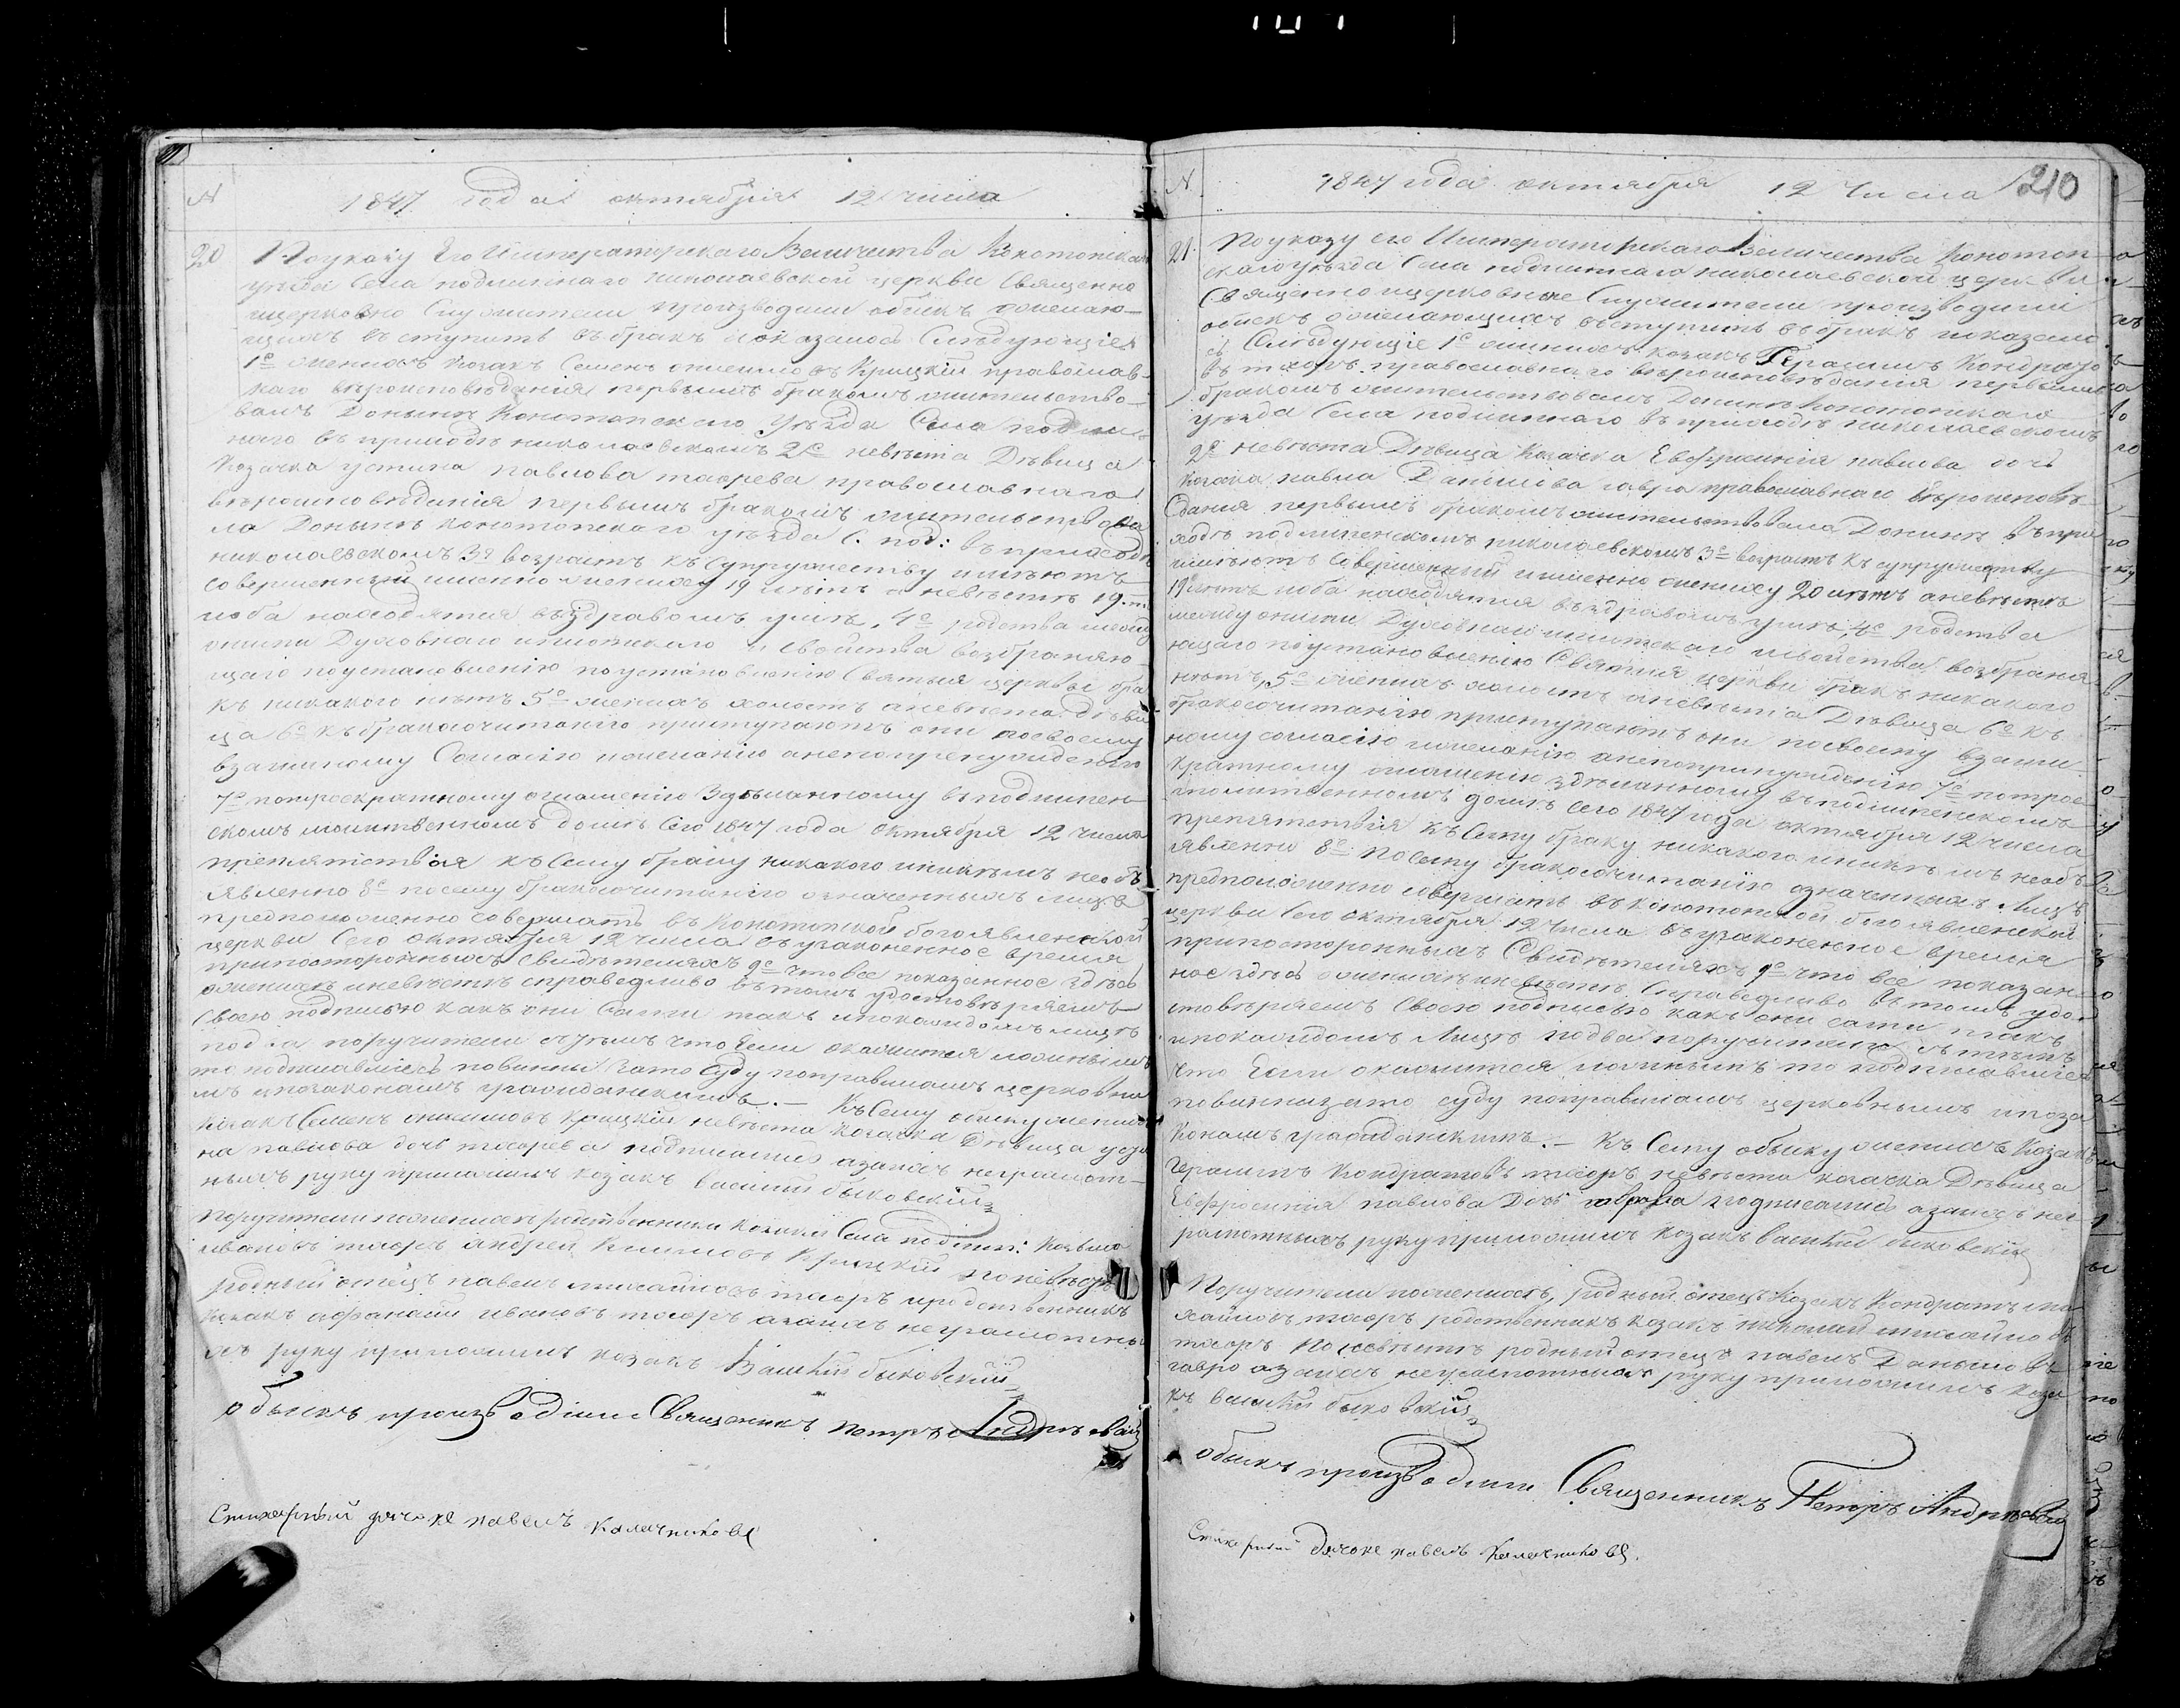 №
1847 года октября 12 числа
20
По указу Его Императорскаго Величества Конотопскаго
уезда Села подлипнаго николаевской церкви Священно
ицерковно Служители производили обыскъ о желаю-
щихъ вступить въ бракъ и оказалось Слѣдующіе
1е женихъ козакъ Семенъ Крицкій православ-
наго вѣроисповѣданія первымъ бракомъ жительство-
валъ Донынѣ Конотопскаго Уѣзда Села подлип-
наго въ приходѣ николаевскомъ 2е невѣста Дѣвица
Козачка устина павлова православнаго
вѣроисповѣданія первымъ бракомъ жительствова
ла Донынѣ конотопскаго уѣзда С. под: въ приходѣ
николаевскомъ 3е возрастъ къ Супружеству имѣютъ
совершенный именно жениху 19 лѣтъ а невѣстѣ 19
и оба находятся въ здравомъ умѣ, 4е родства между
ними Духовнаго и плотскаго и свойства возбраняю-
щаго по установленію по установленію Святыя церкви бра
къ никакого нѣтъ 5е женихъ холостъ а невѣста дѣви
ца 6е къ бракосочитанію приступаютъ они по своему
взаимному Согласію и желанію а не по принужденію
7е по троекратному оглашенію Здѣланному въ подлипен-
скомъ молитвенномъ домѣ Сего 1847 года октября 12 числа
препятствія къ Сему браку никакого никѣмъ необъ
явленно 8е посему бракосочитанію означенныхъ лицъ
предположенно совершать въ Конотопской богоявленской
церкви Сего октября 12 числа въ узаконенное время
при постороннихъ Свидѣтеляхъ 9е что все показанное здѣсь
о женихѣ и невѣстѣ справедливо въ томъ удостовѣряемъ
Своею подписью какъ они сами такъ и по каждомъ лицѣ
по два поручители съ тѣмъ что Если окажится ложнымъ
то подписавшіесь повинны за то Суду по правиламъ церковны
мъ и по законамъ гражданскимъ. – Къ Сему обыску женихъ
козакъ Семенъ Крицкій невѣста козачка Дѣвица усти
на павлова дочь подписались а за нихъ неграмот-
ныхъ руку приложилъ козакъ василій быковскій
Поручители по женихѣ родственники козаки Села подлип:
ивановъ андрей Климовъ Крицкій по невѣстѣ
родный отецъ павелъ михайловъ и родственникъ
козакъ афанасій ивановъ а за нихъ неграмотны
хъ руку приложилъ козакъ Василій быковскій
обыскъ производили Священникъ петръ Андріевскій
Стихарный дячокъ павелъ Калачниковъ
№
1847 года октября 12 Числа
210
21.
По указу его Императорскаго Величества Конотоп
скаго уѣзда Села подлипнаго николаевской церкви
Священно ицерковные Служители производили
обыскъ о желающихъ вступить въ бракъ и оказало
сь Слѣдующіе 1е женихъ козакъ Герасимъ Кондрато
въ православнаго вѣроисповѣданія первымъ
бракомъ жительствовалъ Донынѣ Конотопскаго
уѣзда Села подлипнаго въ приходѣ николаевскомъ
2е невѣста Дѣвица Козачка Евфросинія павлова дочь
козака павла Данилова гавра православнаго вѣроисповѣ
данія первымъ бракомъ жительствовала Донынѣ въ при
ходѣ подлипенскомъ николаевскомъ 3е возрастъ къ супружеству
имѣютъ Совершенный именно жениху 20 лѣтъ а невѣстѣ
19 лѣтъ и оба находятся въ здравомъ умѣ, 4е родства
между оними Духовнаго и плотскаго и свойства возбраня
ющаго по установленію Святыя церкви бракъ никакого
нѣтъ, 5е женихъ холостъ а невѣста Дѣвица 6е къ
бракосочитанію приступаютъ они по своему взаим
ному согласію и желанію а не по принужденію 7е по трое
кратному оглашенію здѣланному въ подлипенскомъ
молитвенномъ домѣ Сего 1847 года октября 12 числа
препятствія къ Сему браку никакого и никѣмъ необъ
явленно 8е по сему бракосочитанію означенныхъ Лицъ
предположенно совершать въ конотопской богоявленской
церкви Сего октября 12 Числа въ узаконенное время
при постороннихъ Свидѣтеляхъ 9е что все показан-
ное здѣсь о женихѣ и невѣстѣ Справедливо въ томъ удо-
стовѣряемъ Своею подписью какъ они сами такъ
и по каждомъ Лицѣ по два поручители съ тѣмъ
что Если окажится ложнымъ то подписавшіесь
повинни за то суду по правиламъ церковнымъ и по за
конамъ гражданскимъ. – Къ Сему обыску женихъ Козакъ
Герасимъ Кондратовъ невѣста козачка Дѣвица
Евфросинія павлова Дочь гавра подписались а за нихъ нег
рамотныхъ руку приложилъ козакъ василій быковскій
Поручители по женихѣ, родный отецъ Козакъ Кондратъ ми
хайловъ родственникъ козакъ николай михайловъ
По невѣстѣ родный отецъ павелъ Даниловъ
гавро а за нихъ неграмотныхъ руку приложилъ коза
къ василій быковскій
обыскъ производили Священникъ Петръ Андріевскій
Стихарный дячокъ павелъ Калачниковъ.